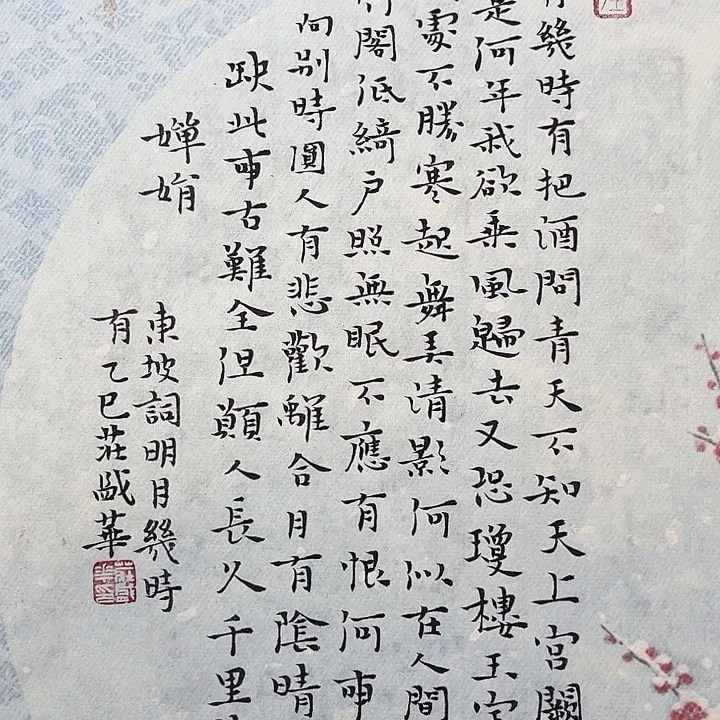 幾時有把酒問青天不知天上宮闕
是何年我欲乘風歸去又恐瓊樓玉宇
處不勝寒起舞弄清影何似在人間
閣低綺戶照無眠不應有恨何事
向別時圓人有悲歡離合月有陰晴
缺此事古難全但願人長久千里
嬋娟
東坡詞明月幾時
有乙巳莊華